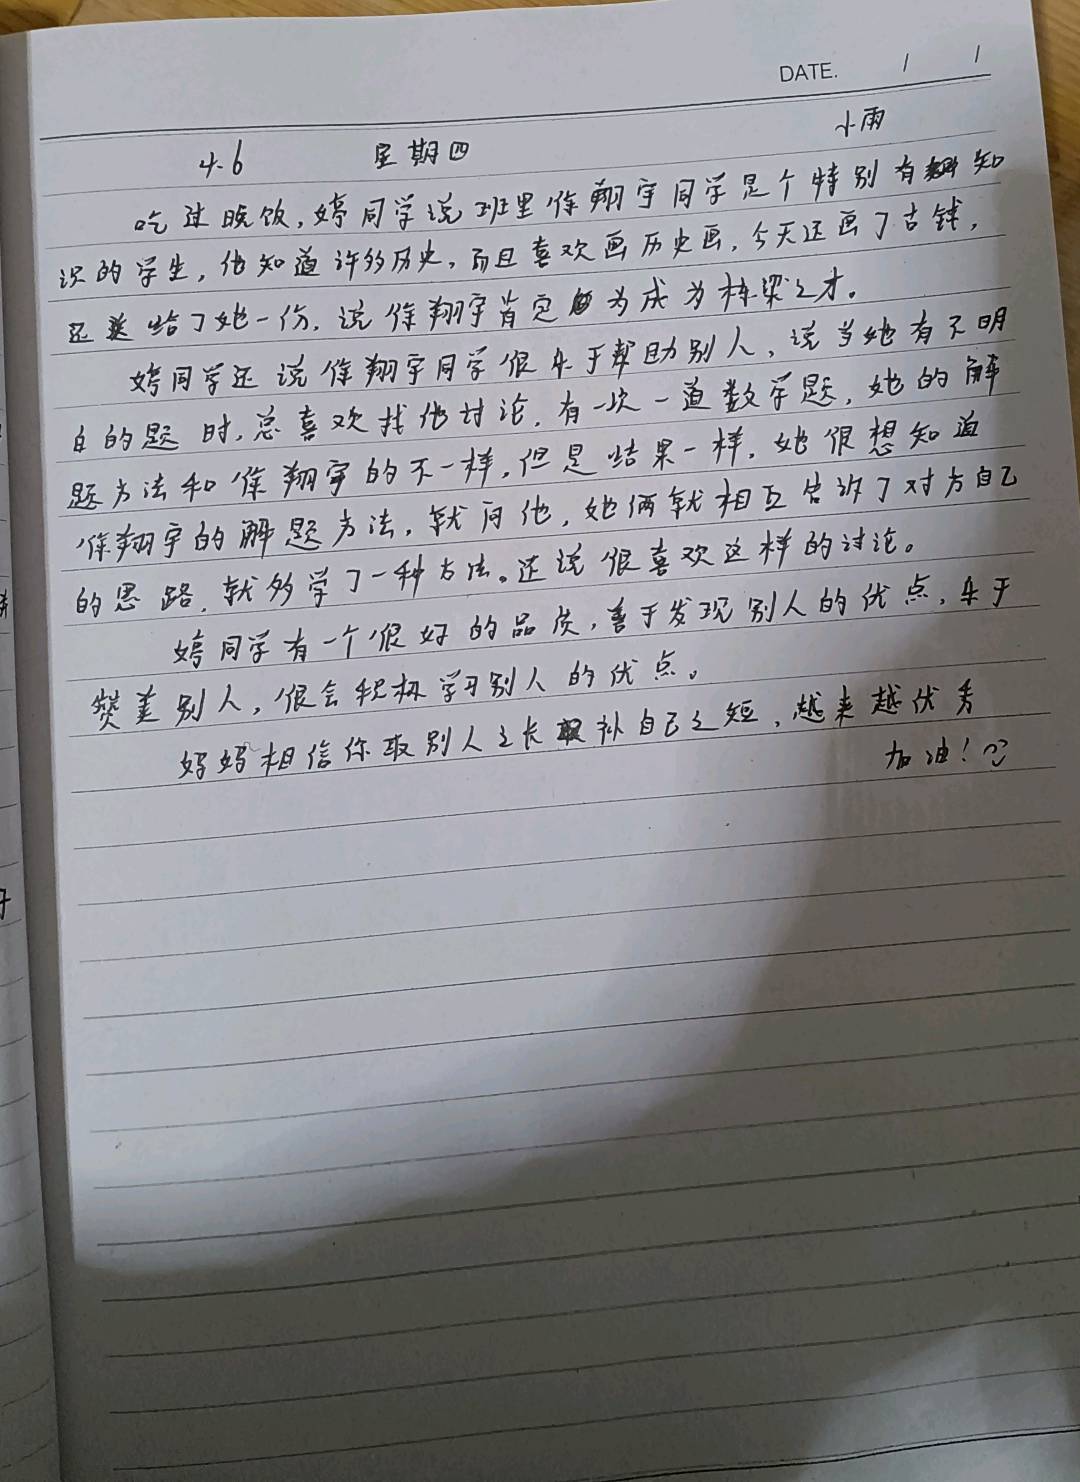 DATE. / /
4.6 星期四 小雨
吃过晚饭,婷同学说班里徐翔宇同学是个特别有知
识的学生,他知道许多历史,而且喜欢画历史画,今天还画了古钱,
还送给了她一份,说徐翔宇肯定为成为栋梁之才。
婷同学还说徐翔宇同学很乐于帮助别人,说当她有不明
白的题时,总喜欢找他讨论,有一次一道数学题,她的解
题方法和徐翔宇的不一样,但是结果一样,她很想知道
徐翔宇的解题方法,就问他,她俩就相互告诉了对方自己
的思路,就多学了一种方法。还说很喜欢这样的讨论。
婷同学有一个很好的品质,善于发现别人的优点,乐于
赞美别人,很会积极学习别人的优点。
妈妈相信你取别人之长补自己之短,越来越优秀
加油!